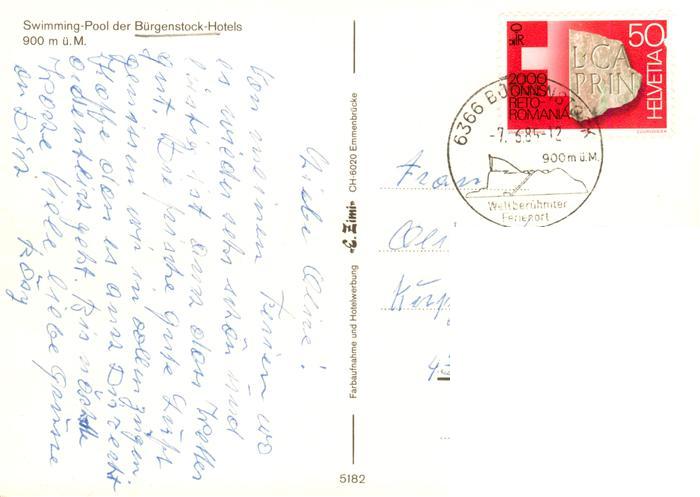 Swimming-Pool der Bürgenstock-Hotels
900 m ü. M.
Liebe Oline!
Von meinen Ferien wo
es wieder sehr schön und
lustig ist und das Wetter
gut. Die frische gute Luft
geniessen wir in vollen Zügen
Hoffe dass es auch Dir recht
ordentlich geht. Bis nächste
Woche Viele liebe Grüsse
an Dich
Rösy
Farbaufnahme und Hotelwerbung «E. Zimi» CH-6020 Emmenbrücke
5182
50
HELVETIA
L·CA
PRIN
2000
ONNS
RETO-
ROMANIA
6366 BÜRGENSTOCK
-7. 6.84-12
900 m ü. M.
Weltberühmter
Ferienort
Frau